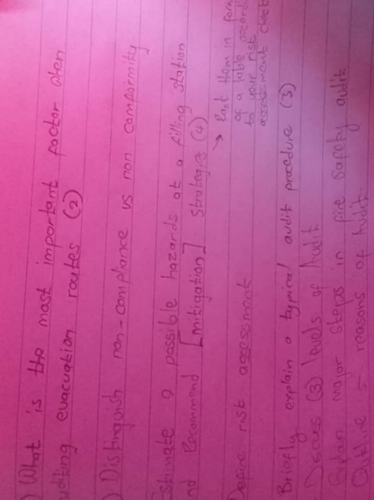 ) What is the most important factor when
auditing evacuation routes (2)
) Distinguish non-compliance vs non comformity
Estimate 9 possible hazards at a filling station
nd Recommend [mitigation] strategies (4)
→ List them in form
of a table according
to your risk
assessment check
Define risk assessment
Briefly explain a typical audit procedure (3)
Discuss (3) levels of Audit
Explain major steps in fire safety audit
Outline - reasons of Audit.